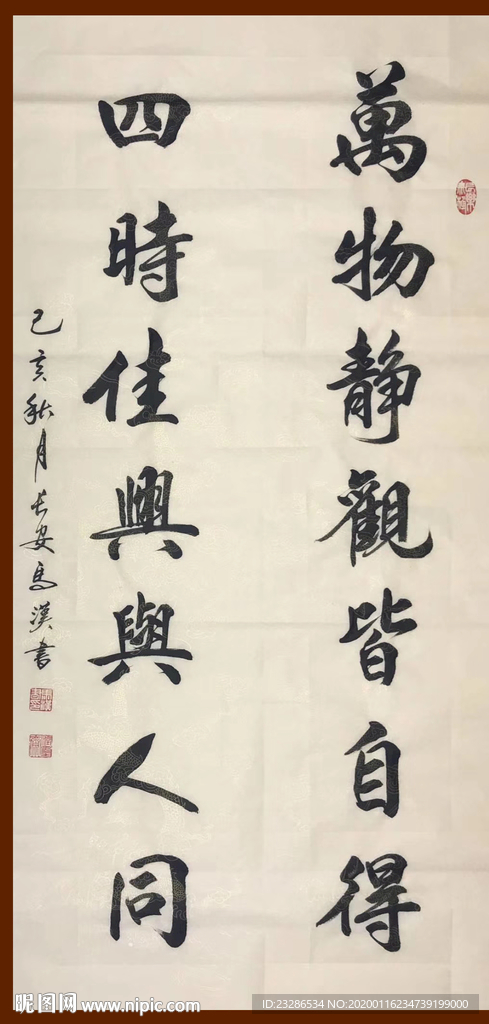 萬物靜觀皆自得
四時佳興與人同
己亥秋月長安馬漢書
昵图网 www.nipic.com
ID:23286534 NO:20200116234739199000